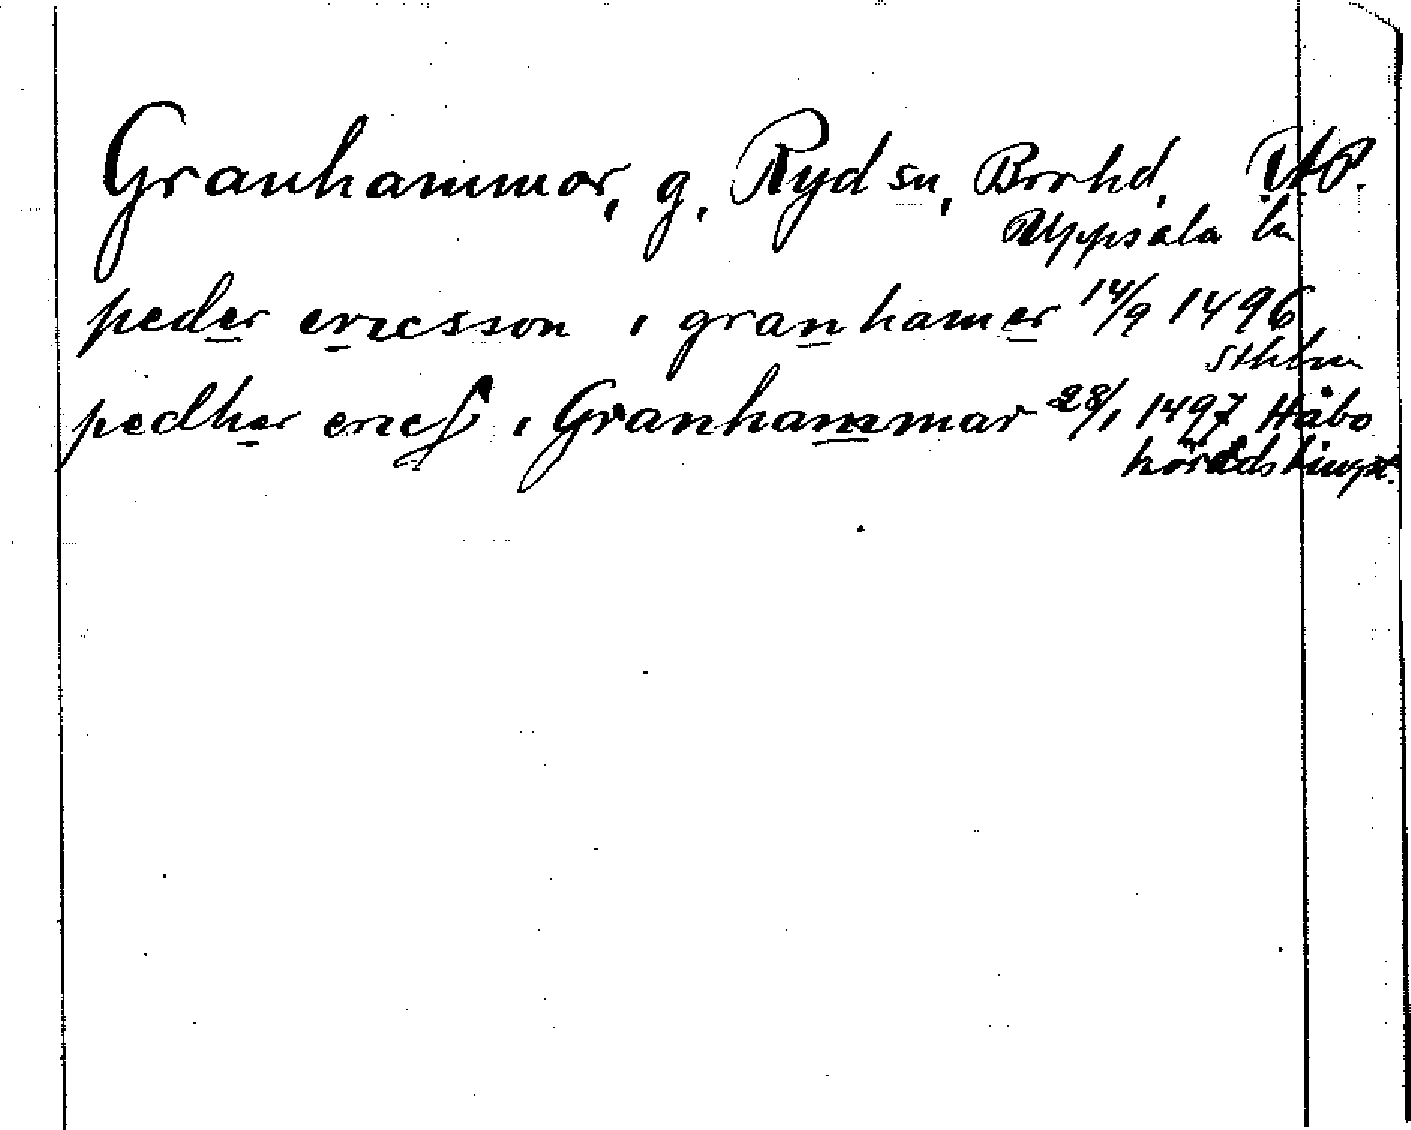 Granhammar, g, Ryd sn, Brohd, UP.
Uppsala ln
peder ericsson i granhamer 14/9 1496
Sthlm
pedher erics i Granhammar 28/1 1497 Håbo
häradstingpl.